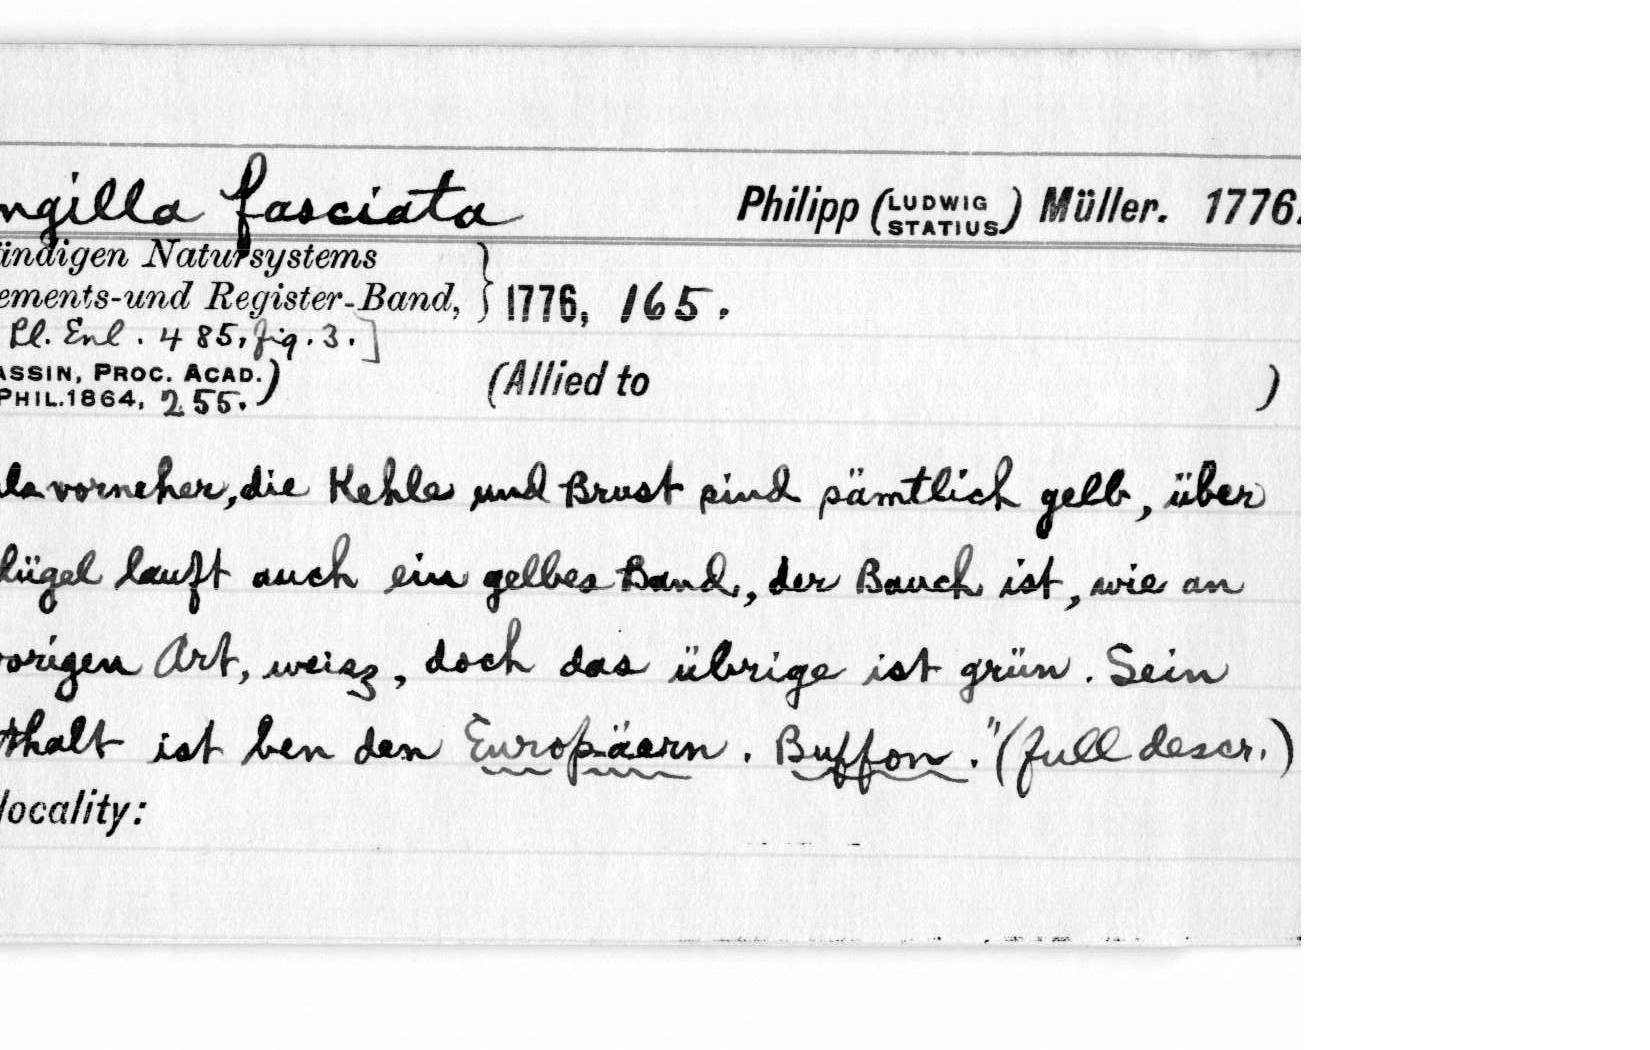 ngilla fasciata Philipp (LUDWIG STATIUS) Müller. 1776.
ändigen Natursystems
ements-und Register-Band, } 1776, 165.
Pl. Enl. 485, fig. 3.]
ASSIN, PROC. ACAD. (Allied to )
PHIL. 1864, 255.)
ls vorneher, die Kehle und Brust sind sämtlich gelb, über
lügel lauft auch ein gelbes Band, der Bauch ist, wie an
vorigen Art, weisz, doch das übrige ist grün. Sein
thalt ist ben den Europäern. Buffon." (full descr.)
locality: